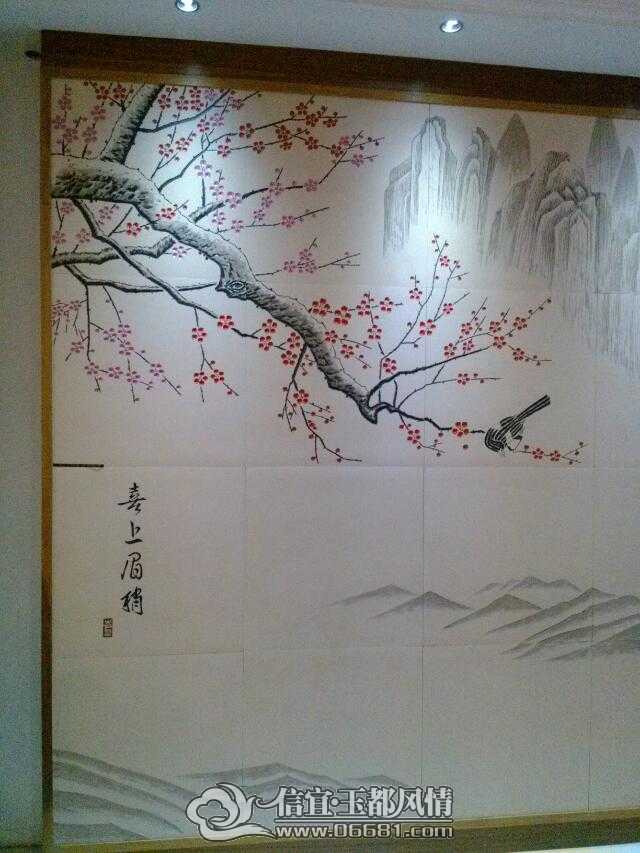 喜上眉稍
信宜·玉都风情
www.06681.com